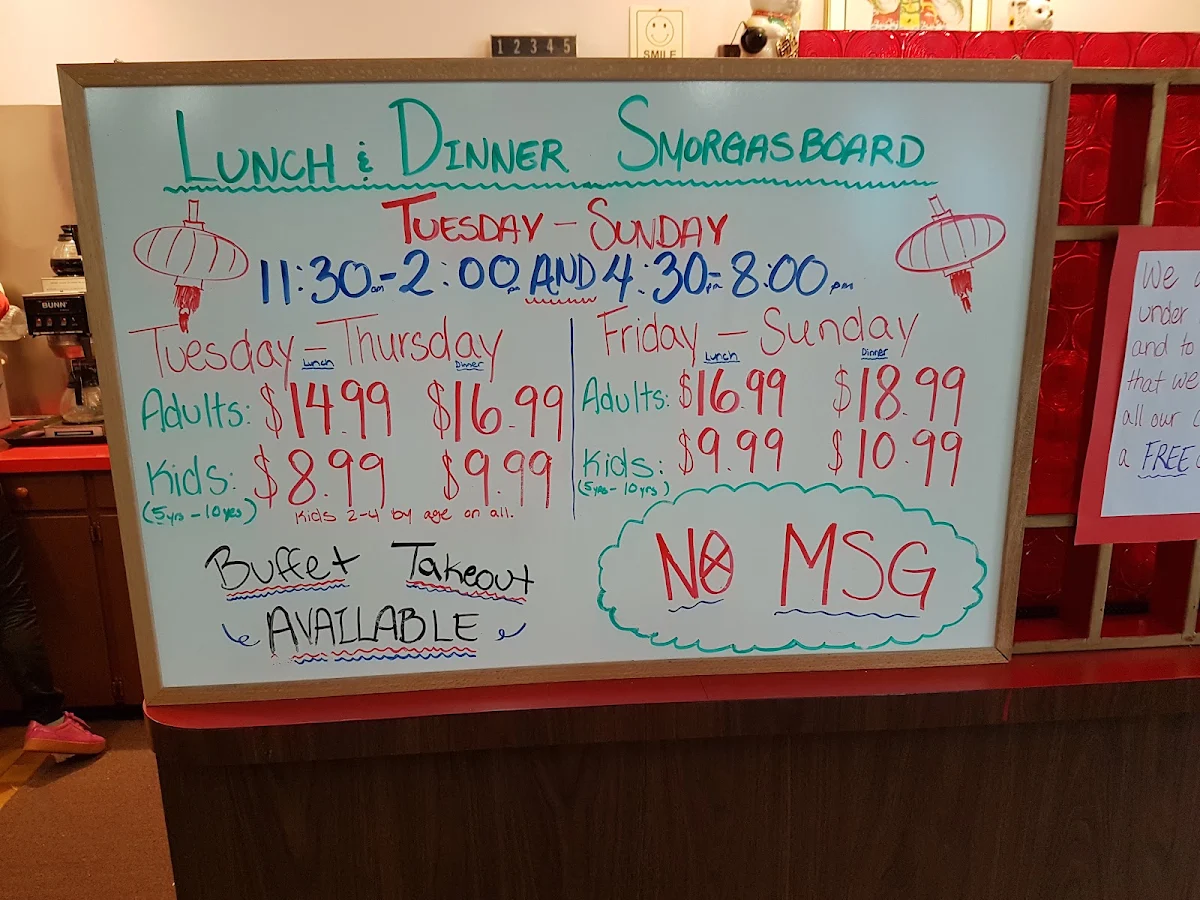 12345
SMILE
BUNN
LUNCH & DINNER SMORGASBOARD
TUESDAY - SUNDAY
11:30am - 2:00pm AND 4:30pm - 8:00pm
Tuesday - Thursday
Lunch Dinner
Adults: $14.99 $16.99
Kids: $8.99 $9.99
(5yrs - 10yrs) Kids 2-4 by age on all.
Friday - Sunday
Lunch Dinner
Adults: $16.99 $18.99
Kids: $9.99 $10.99
(5yrs - 10yrs)
Buffet Takeout
AVAILABLE
NO MSG
We
under
and to
that we
all our
a FREE